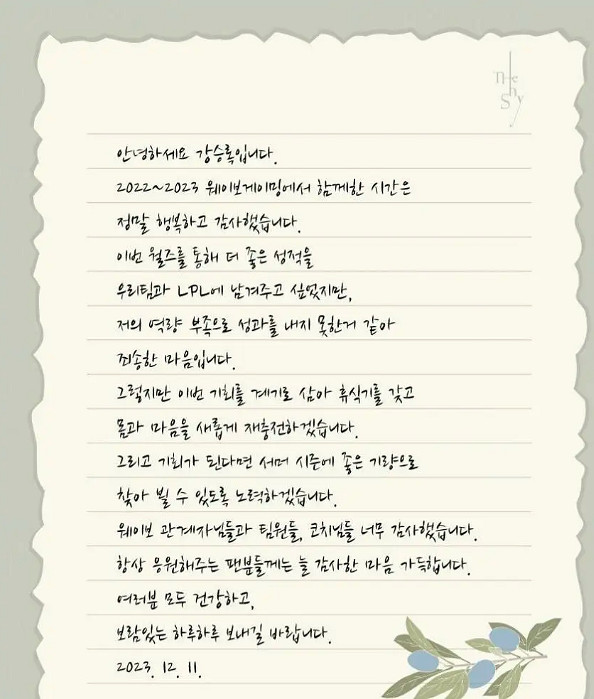 The Shy
안녕하세요 강승록입니다.
2022~2023 웨이보게이밍에서 함께한 시간은
정말 행복하고 감사했습니다.
이번 월즈를 통해 더 좋은 성적을
우리팀과 LPL에 남겨주고 싶었지만,
저의 역량 부족으로 성과를 내지 못한거 같아
죄송한 마음입니다.
그렇지만 이번 기회를 계기로 삼아 휴식기를 갖고
몸과 마음을 새롭게 재충전하겠습니다.
그리고 기회가 된다면 서머 시즌에 좋은 기량으로
찾아 뵐 수 있도록 노력하겠습니다.
웨이보 관계자님들과 팀원들, 코치님들 너무 감사했습니다.
항상 응원해주는 팬분들께는 늘 감사한 마음 가득합니다.
여러분 모두 건강하고,
보람있는 하루하루 보내길 바랍니다.
2023. 12. 11.